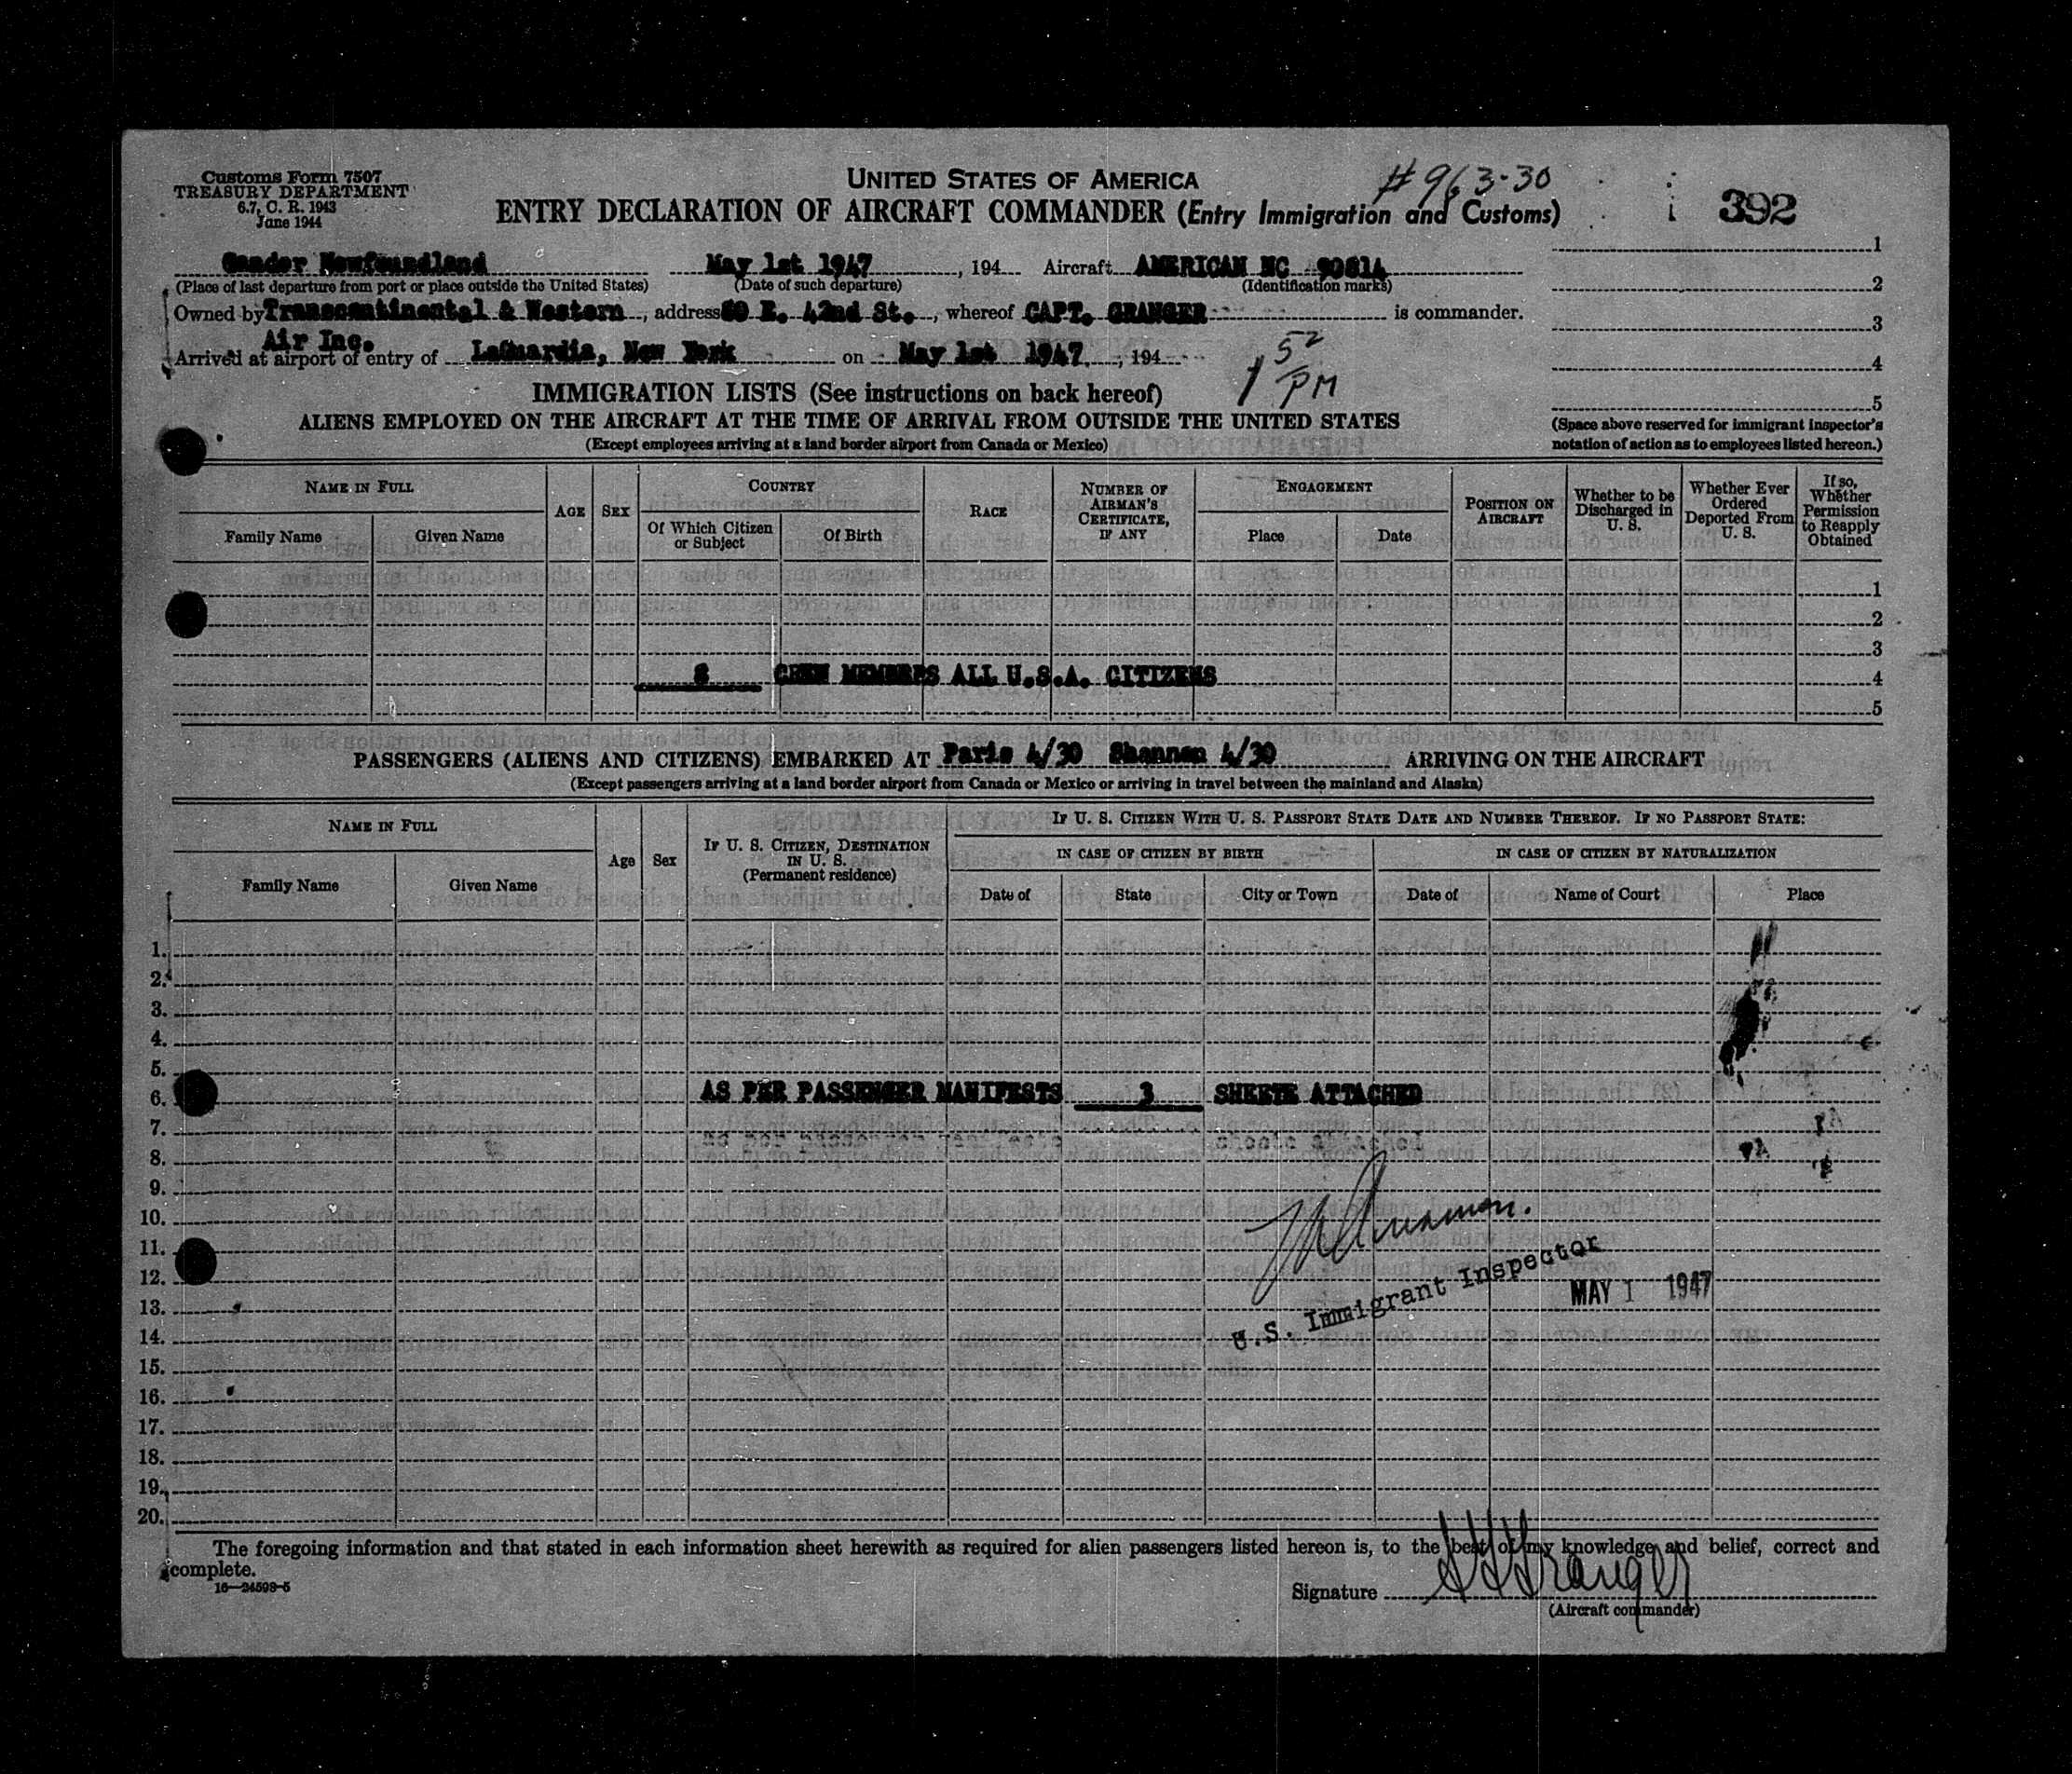 Customs Form 7507
TREASURY DEPARTMENT
6.7, C. R. 1943
June 1944
UNITED STATES OF AMERICA
ENTRY DECLARATION OF AIRCRAFT COMMANDER (Entry Immigration and Customs)
#963-30
392
Gander Newfoundland May 1st 1947, 194 Aircraft AMERICAN NC 90814
(Place of last departure from port or place outside the United States) (Date of such departure) (Identification marks)
Owned by Transcontinental & Western, address 80 E. 42nd St., whereof CAPT. GRANGER is commander.
Air Inc.
Arrived at airport of entry of LaGuardia, New York on May 1st 1947, 194
1 52 PM
1
2
3
4
5
(Space above reserved for immigrant inspector's
notation of action as to employees listed hereon.)
IMMIGRATION LISTS (See instructions on back hereof)
ALIENS EMPLOYED ON THE AIRCRAFT AT THE TIME OF ARRIVAL FROM OUTSIDE THE UNITED STATES
(Except employees arriving at a land border airport from Canada or Mexico)
NAME IN FULL
Family Name
Given Name
AGE
SEX
COUNTRY
Of Which Citizen
or Subject
Of Birth
RACE
NUMBER OF
AIRMAN'S
CERTIFICATE,
IF ANY
ENGAGEMENT
Place
Date
POSITION ON
AIRCRAFT
Whether to be
Discharged in
U. S.
Whether Ever
Ordered
Deported From
U. S.
If so,
Whether
Permission
to Reapply
Obtained
1
2
3
8 CREW MEMBERS ALL U.S.A. CITIZENS 4
5
PASSENGERS (ALIENS AND CITIZENS) EMBARKED AT Paris 4/30 Shannon 4/30 ARRIVING ON THE AIRCRAFT
(Except passengers arriving at a land border airport from Canada or Mexico or arriving in travel between the mainland and Alaska)
NAME IN FULL
Family Name
Given Name
Age
Sex
IF U. S. CITIZEN, DESTINATION
IN U. S.
(Permanent residence)
IF U. S. CITIZEN WITH U. S. PASSPORT STATE DATE AND NUMBER THEREOF. IF NO PASSPORT STATE:
IN CASE OF CITIZEN BY BIRTH
IN CASE OF CITIZEN BY NATURALIZATION
Date of
State
City or Town
Date of
Name of Court
Place
1.
2.
3.
4.
5.
6. AS PER PASSENGER MANIFESTS 3 SHEETS ATTACHED
7.
8.
9.
10.
11.
12.
U.S. Immigrant Inspector
MAY 1 1947
13.
14.
15.
16.
17.
18.
19.
20.
The foregoing information and that stated in each information sheet herewith as required for alien passengers listed hereon is, to the best of my knowledge and belief, correct and
complete.
16—24598-5
Signature Granger
(Aircraft commander)